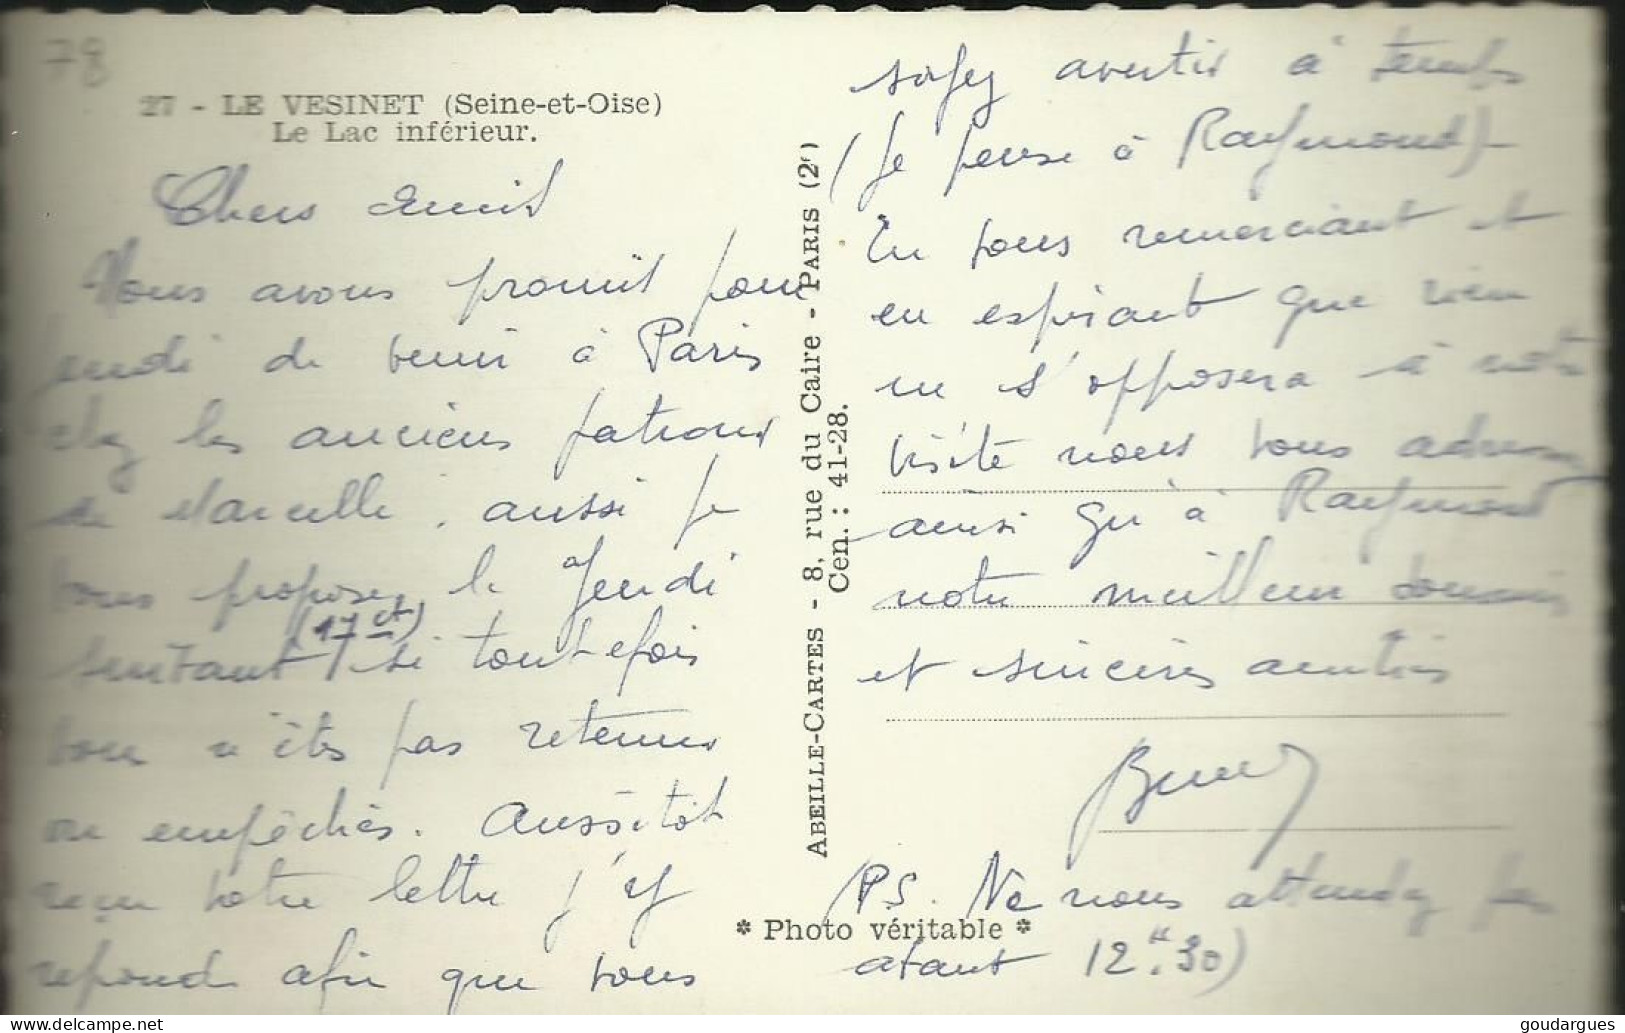 78
27 - LE VESINET (Seine-et-Oise)
Le Lac inférieur.
Chers Amis
Nous avons promis pour
jeudi de venir à Paris
chez les anciens patrons
de Marcelle, aussi je
vous propose le Jeudi
(17 ct)
suivant si toutefois
vous n'êtes pas retenus
ou empêchés. Aussitôt
reçu votre lettre j'y
réponds afin que vous
ABEILLE-CARTES - 8, rue du Caire - PARIS (2e)
Cen. : 41-28.
* Photo véritable *
soyez avertis à temps
(Je pense à Raymond)-
En vous remerciant et
en espérant que rien
ne s'opposera à notre
visite nous vous adressons
ainsi qu'à Raymond
notre meilleur souvenir
et sincères amitiés
(PS. Ne nous attendez pas
avant 12h.30)
goudargues
delcampe.net